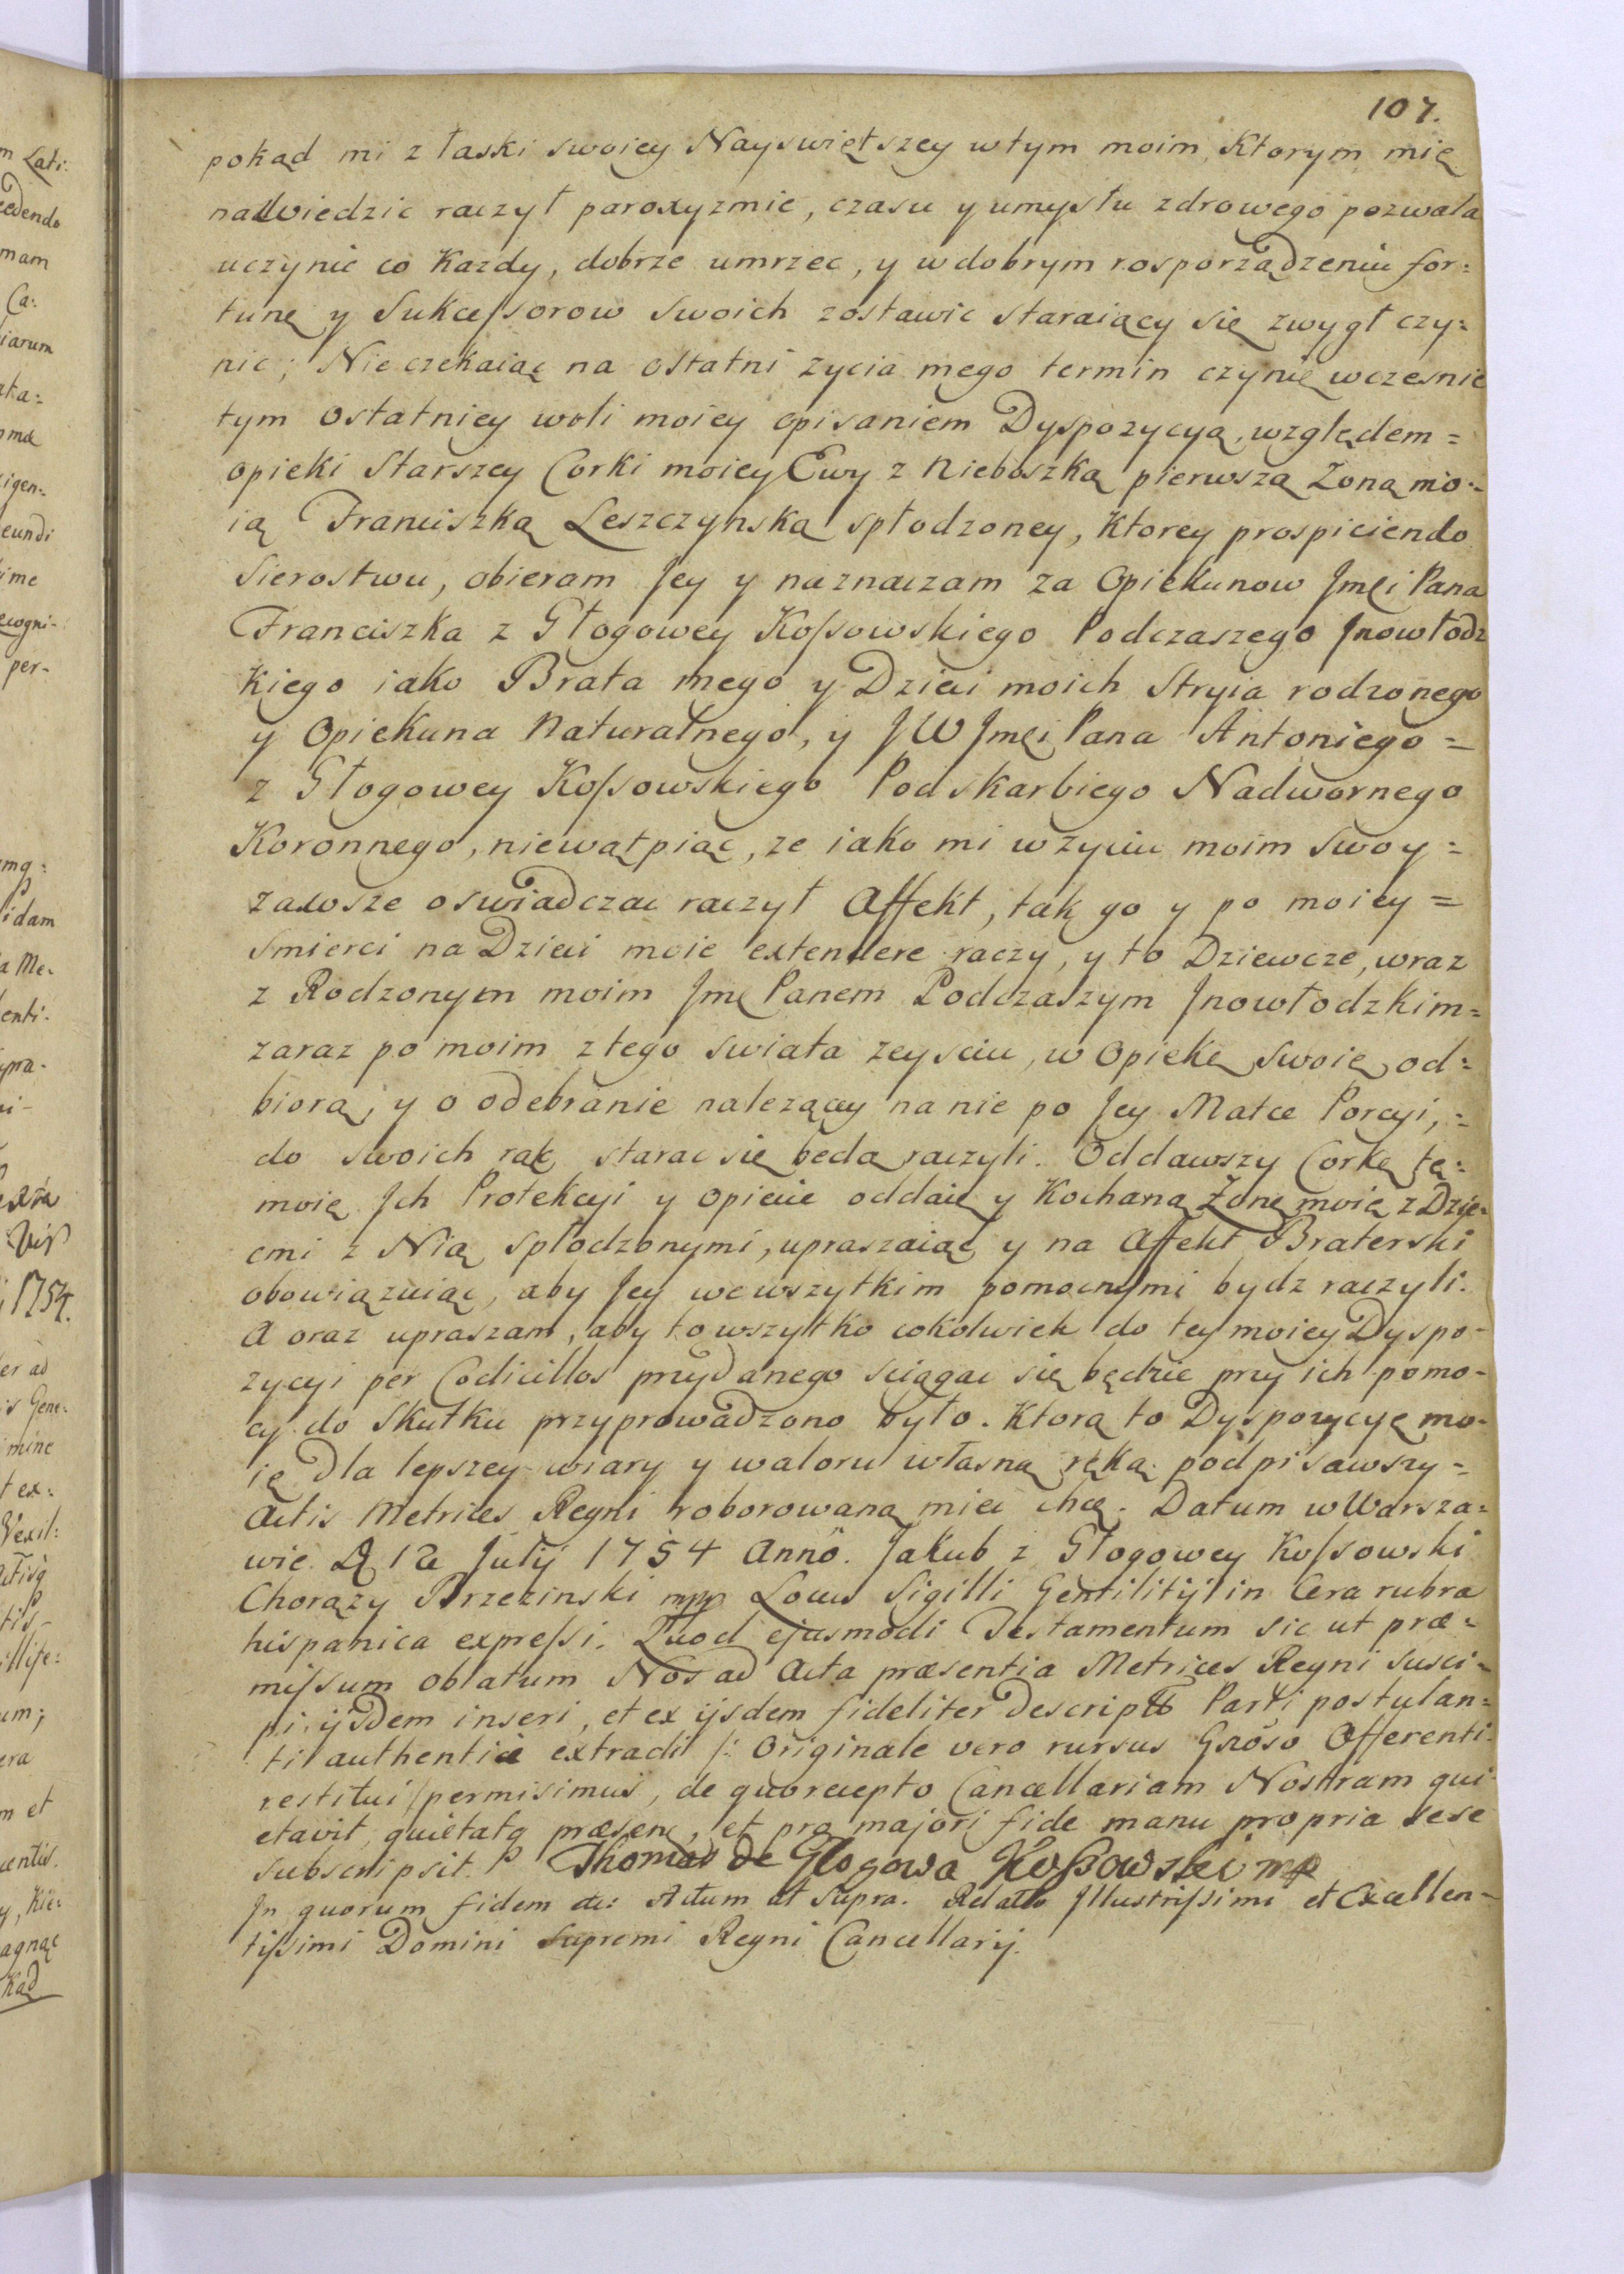 107.
pokąd mi z łaski swoiey Nayswiętszey w tym moim, Ktorym mię
nadwiedzic raczył paroxyzmie, czasu y umysłu zdrowego pozwala
uczynic co Kazdy, dobrze umrzec, y w dobrym rosporządzeniu for:
tunę y Sukcessorow Swoich zostawic staraiący się zwygł czy:
nic; Nie czekaiąc na ostatni zycia mego termin czynię wczesnie
tym ostatniey woli moiey opisaniem Dyspozycyą, względem =
opieki Starszey Corki moiey Ewy z Nieboszką pierwszą Zoną mo:
ią Franciszką Leszczynską spłodzoney, Ktorey prospiciendo
Sierostwu, obieram Jey y naznaczam za Opiekunow Jmci Pana
Franciszka z Głogowey Kossowskiego Podczaszego Jnowłodz
Kiego iako Brata mego y Dzieci moich Stryia rodzonego
y Opiekuna Naturalnego, y JW Jmci Pana Antoniego =
z Głogowey Kossowskiego Podskarbiego Nadwornego
Koronnego, niewątpiąc, ze iako mi w zyciu moim Swoy =
zawsze oswiadczac raczył Affekt, tak go y po moiey =
Smierci na Dzieci moie extendere raczy, y to Dziewcze, wraz
z Rodzonym moim Jmc Panem Podczaszym Jnowłodzkim =
zaraz po moim z tego swiata zeysciu, w Opiekę Swoię od:
biorą, y o odebranie nalezącey na nie po Jey Matce Porcyi, =
do swoich rąk starac się będą raczyli. Oddawszy Corkę tę:
moię Jch Protekcyi y opiece oddaię y Kochaną Zonę moię z Dzie:
cmi z Nią spłodzonymi, upraszaiąc y na Affekt Braterski
obowiązuiąc, aby Jey we wszytkim pomocnymi bydz raczyli.
A oraz upraszam, aby to wszytko cokolwiek do tey moiey Dyspo-
zycyi per Codicillos przydanego sciągac się będzie przy ich pomo-
cy do Skutku przyprowadzono było. Ktorą to Dyspozycyę mo-
ię Dla lepszey wiary y waloru własną ręką podpisawszy =
Actis Metrices Regni roborowaną miec chcę. Datum w Warsza:
wie D 12 Julij 1754 Anno. Jakub z Głogowey Kossowski
Chorązy Brzezinski mpp Locus Sigilli Gentilitij in Cera rubra
hispanica expressi. Quod ejusmodi Testamentum sic ut præ-
missum oblatum Nos ad Acta præsentia Metrices Regni susci-
pi ijsdem inseri, et ex ijsdem fideliter Descripto Parti postulan=
ti authentice extradi /: Originale vero rursus Gnoso Offerenti
restitui / permisimus, de quo recepto Cancellariam Nostram qui-
etavit, quietatq præsen, et pro majori fide manu propria sese
subscripsit. Thomas de Głogowa Kossowski mp
Jn quorum fidem etc: Actum ut Supra. Relatio Jllustrissimi et Excellen-
tissimi Domini Supremi Regni Cancellarij.